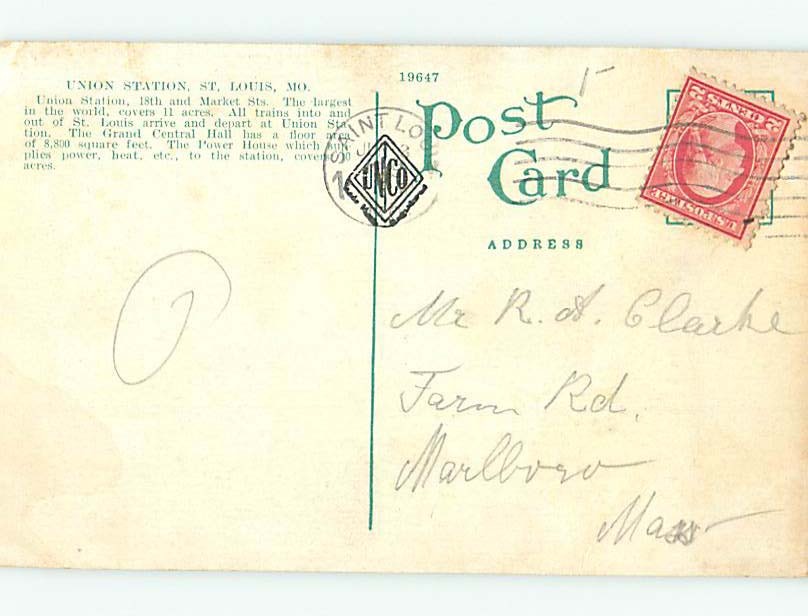 UNION STATION, ST. LOUIS, MO.
Union Station, 18th and Market Sts. The largest
in the world, covers 11 acres. All trains into and
out of St. Louis arrive and depart at Union Sta-
tion. The Grand Central Hall has a floor area
of 8,800 square feet. The Power House which sup-
plies power, heat, etc., to the station, covers
acres.
19647
SAINT LOU
UNCO
Post
Card
2 CENTS 2
U.S. POSTAGE
ADDRESS
Mr R. A. Clarke
Farm Rd.
Marlboro
Mass